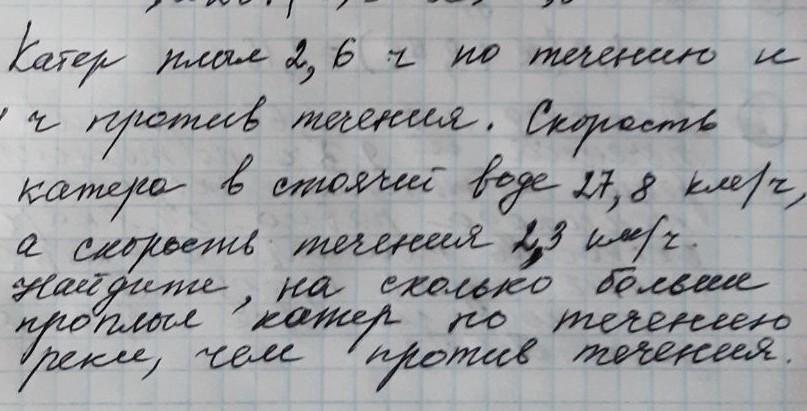 Катер плыл 2,6 ч по течению и
ч против течения. Скорость
катера в стоячей воде 27,8 км/ч,
а скорость течения 2,3 км/ч.
Найдите, на сколько больше
проплыл катер по течению
реки, чем против течения.